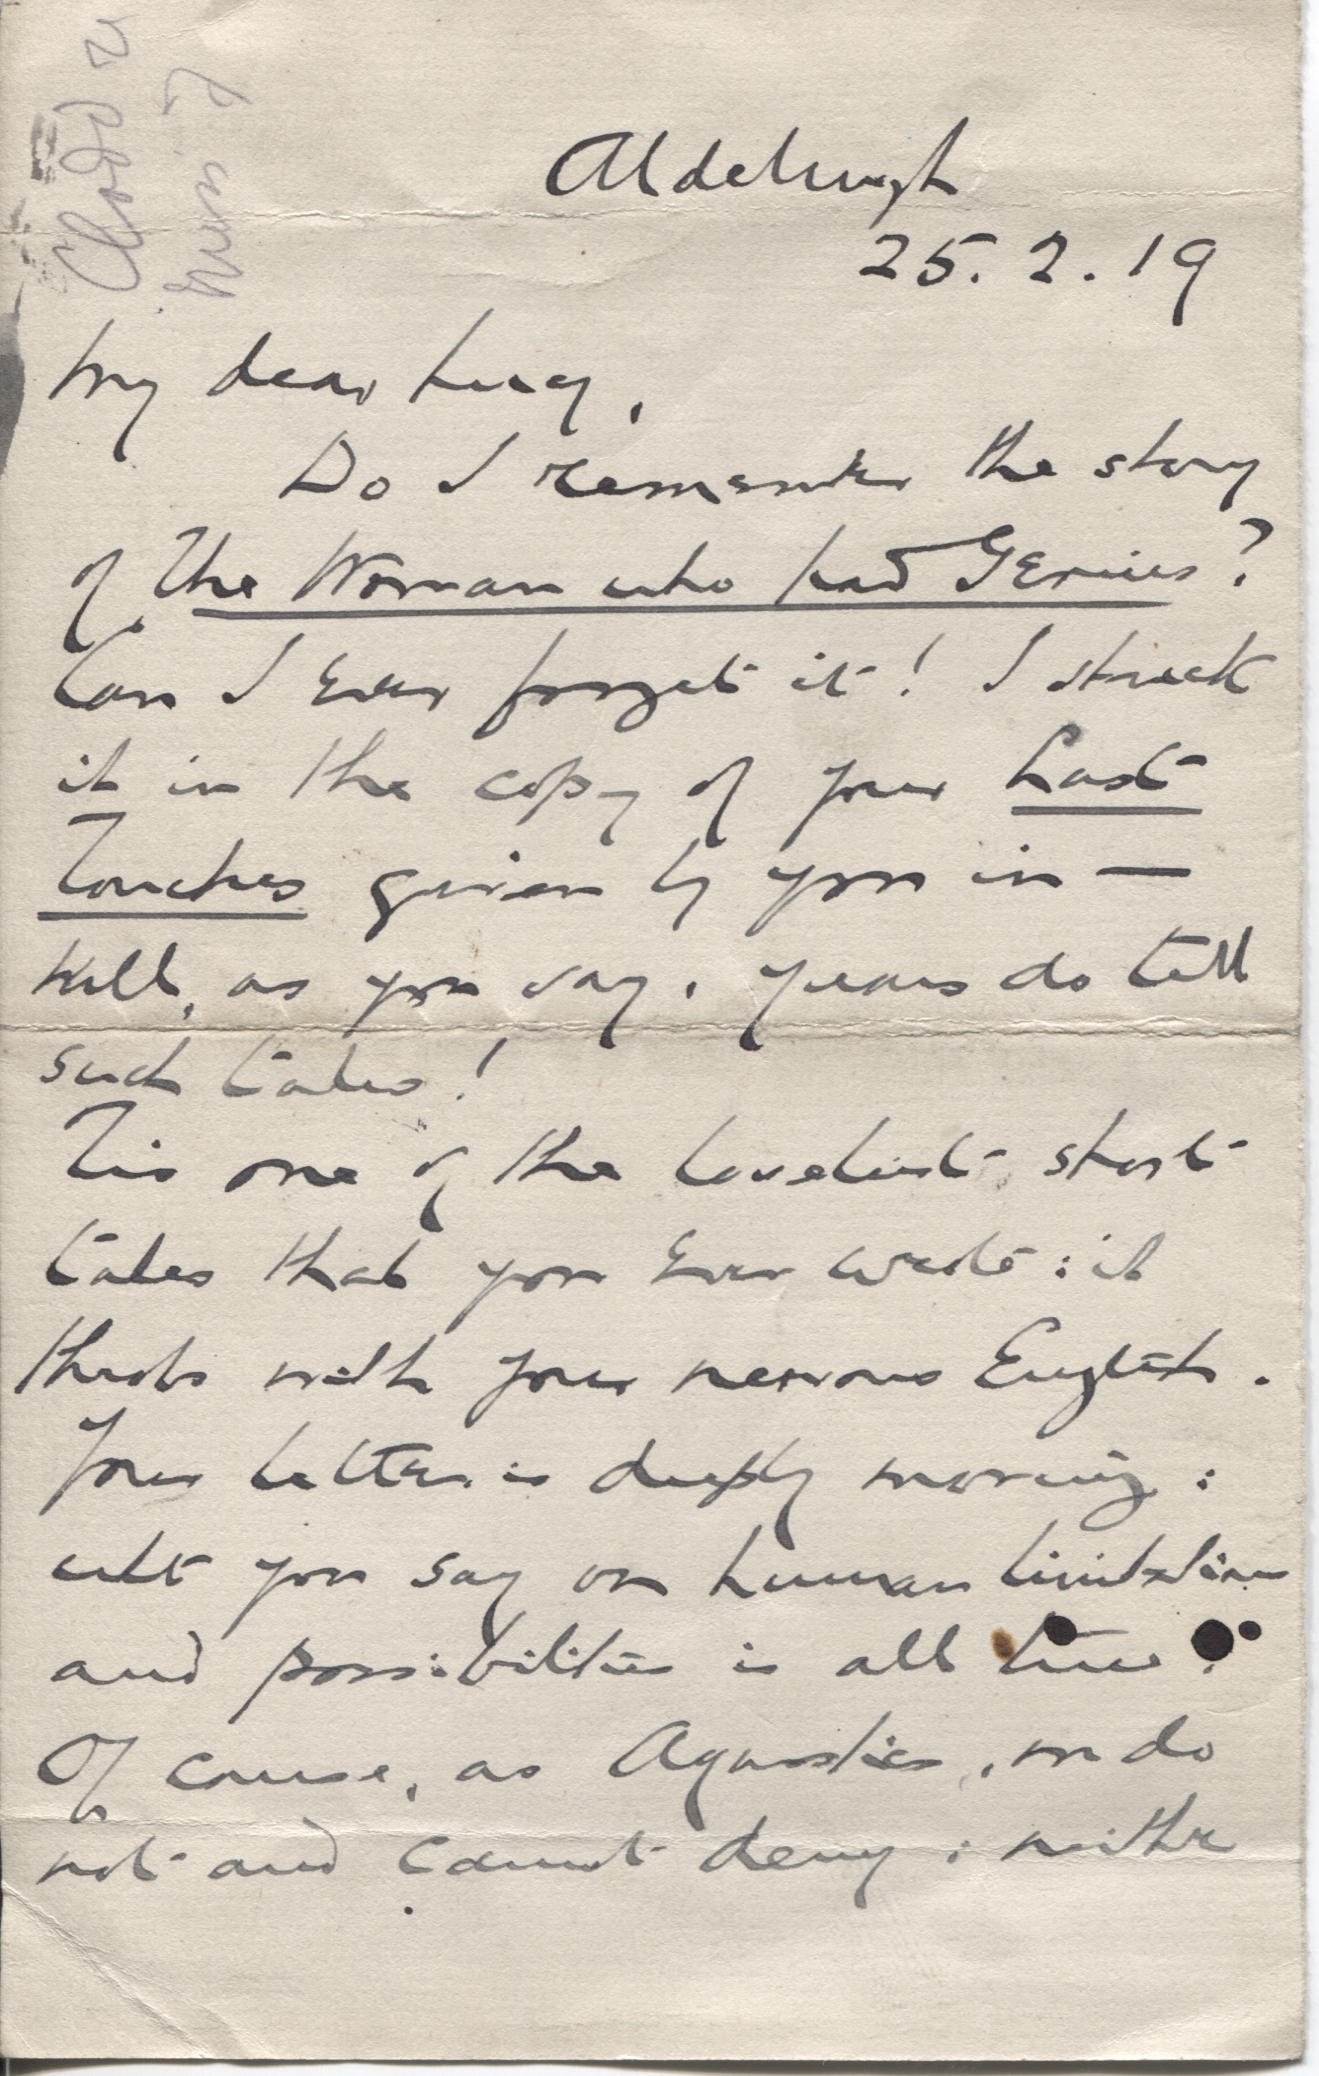 Clodd
Aldeburgh
25.2.19
My dear Lucy,
Do I remember the story
of The Woman who had Genius?
Can I ever forget it! I stuck
it in the copy of your Last
Touches given by you in —
Well, as you say, years do tell
such tales!
Tis one of the loveliest short
tales that you ever wrote: it
throbs with your nervous English.
Your letter is deeply moving:
wht you say on human limitations
and possibilities is all true.
Of course, as Agnostics, we do
not and cannot deny; neither